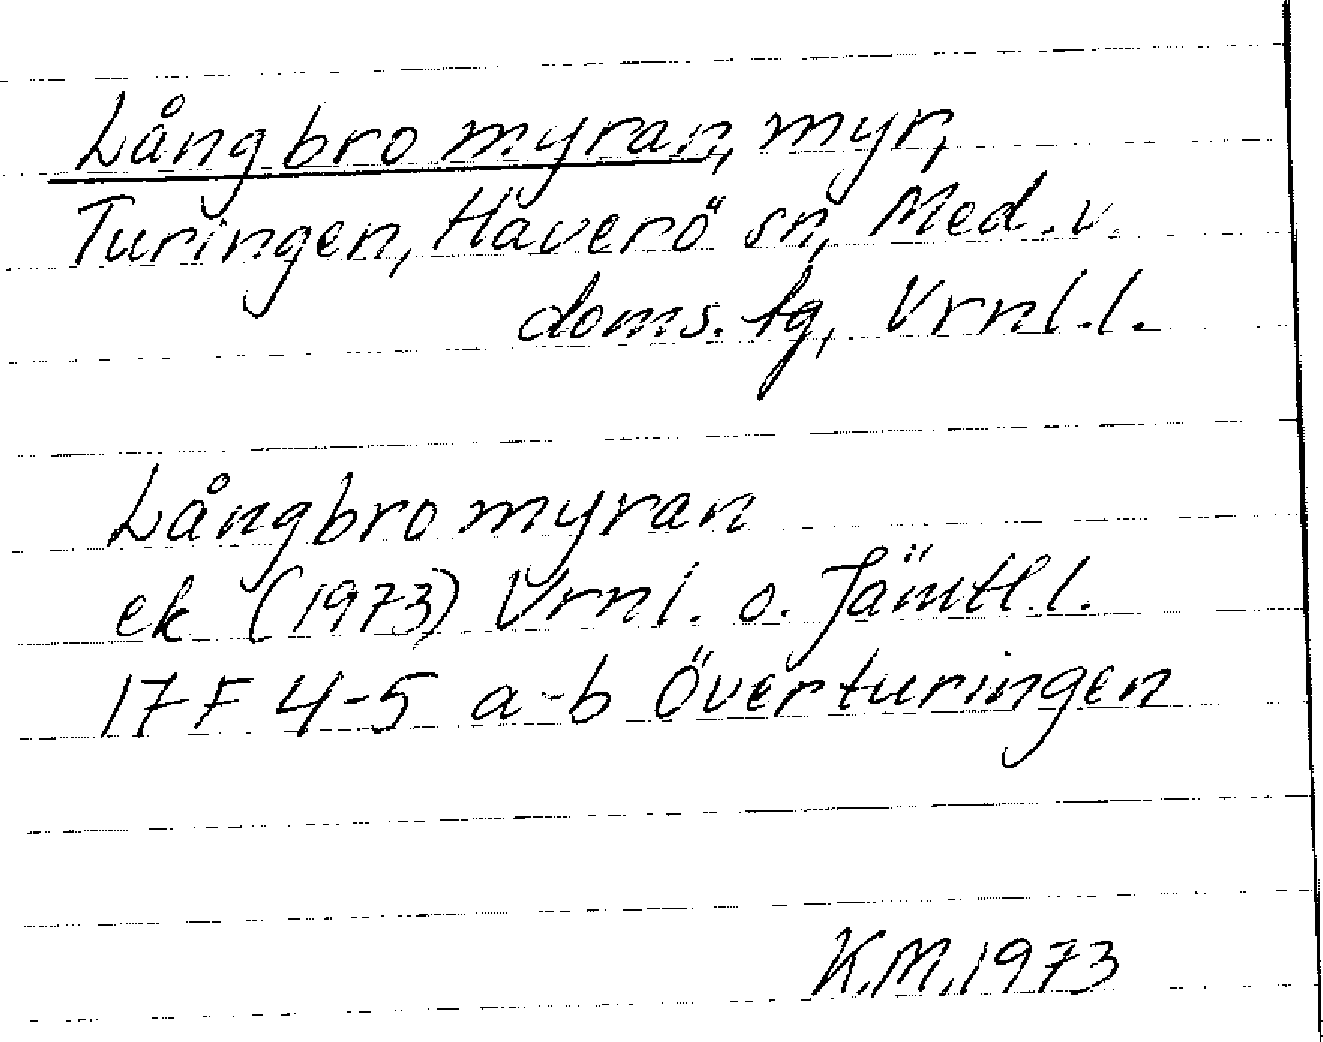 Långbromyran, myr,
Turingen, Haverö sn, Med. v.
doms. tg, Vrnl.l.
Långbromyran
ek (1973) Vrnl. o. Jämtl.l.
17F 4-5 a-b Överturingen
K.M. 1973